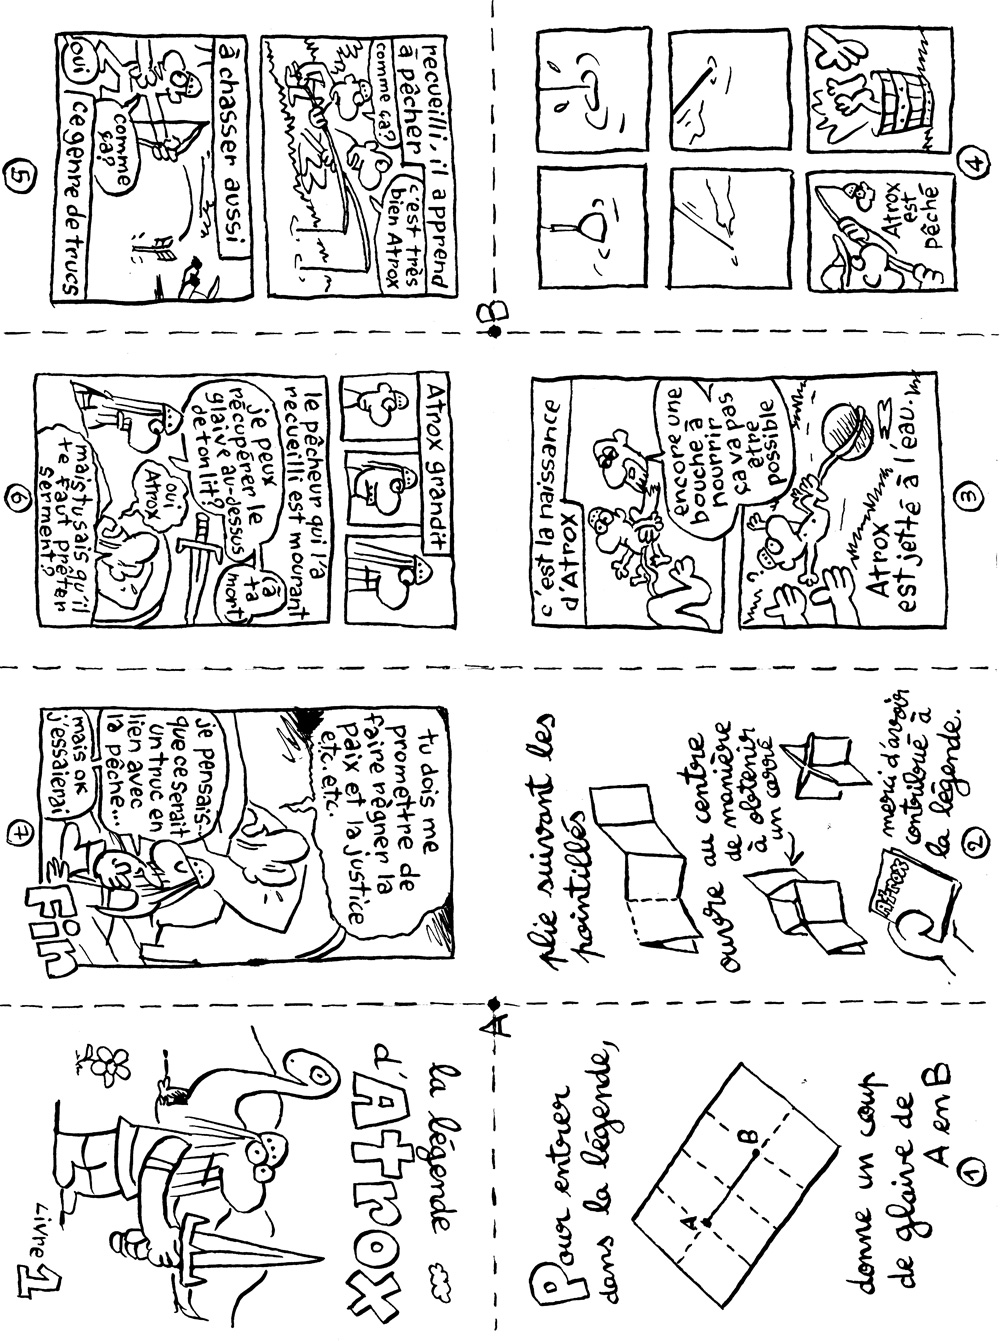 Livre 1
la légende
d'Atrox
Pour entrer
dans la légende,
A
B
donne un coup
de glaive de
A en B
1
plie suivant les
pointillés
au centre
ouvre de manière
à obtenir
un carré
ATROX
merci d'avoir
contribué à
la légende.
2
c'est la naissance
d'Atrox
encore une
bouche à
nourrir
ça va pas
être
possible
?
Atrox
est jetté à l'eau.
3
Atrox
est
pêché
4
recueilli, il apprend
à pêcher
comme
ça?
c'est très
bien Atrox
à chasser aussi
comme
ça?
oui
ce genre de trucs
5
Atrox grandit
le pêcheur qui l'a
recueilli est mourant
je peux
récupérer le
glaive au-dessus
de ton lit?
à
ta
mort
oui
Atrox
mais tu sais qu'il
te faut prêter
serment?
6
tu dois me
promettre de
faire règner la
paix et la justice
etc. etc.
je pensais..
que ce serait
un truc en
lien avec
la pêche...
mais ok
j'essaierai
Fin
7
A
B